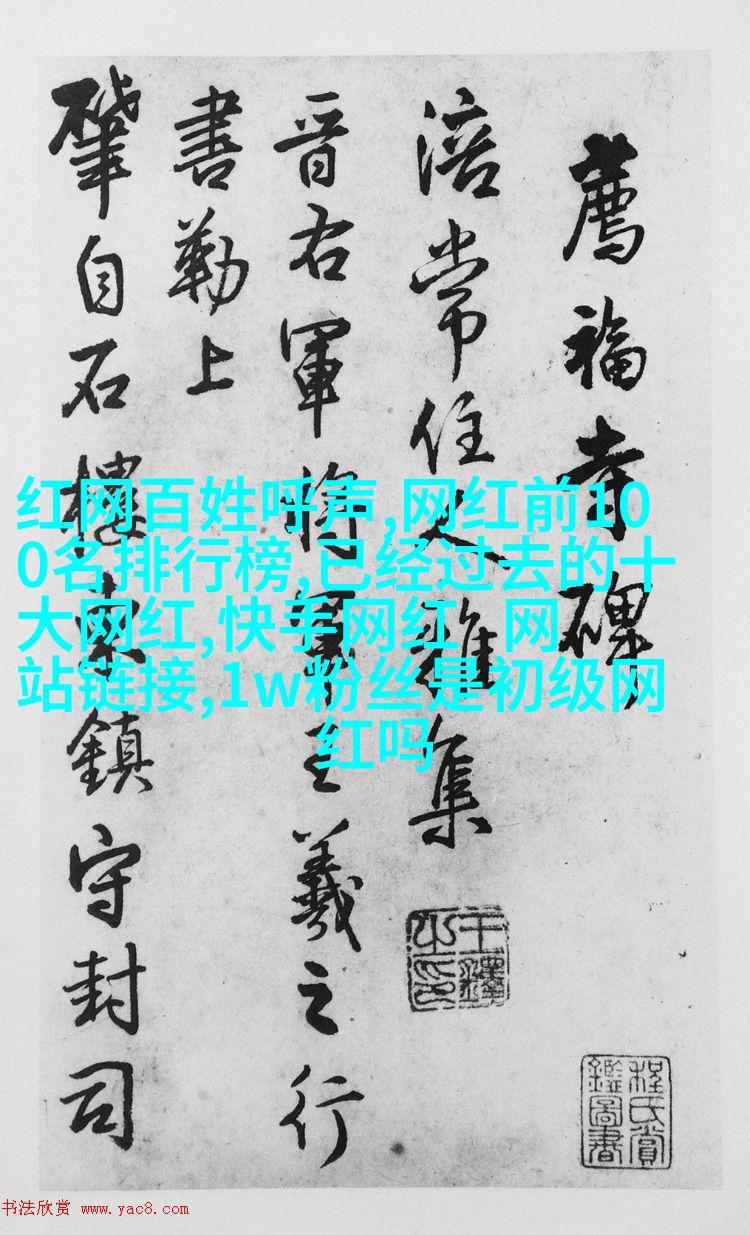 薦福寺碑
涪常住 雜集
晉右軍將軍王羲之行
書勒上
肇自石樓東鎮守封司
王鐸之印
程氏賞鑑圖書
红网百姓呼声,网红前10
0名排行榜,已经过去的十
大网红,快手网红 网
站链接,1w粉丝是初级网
红吗
书法欣赏 www.yac8.com